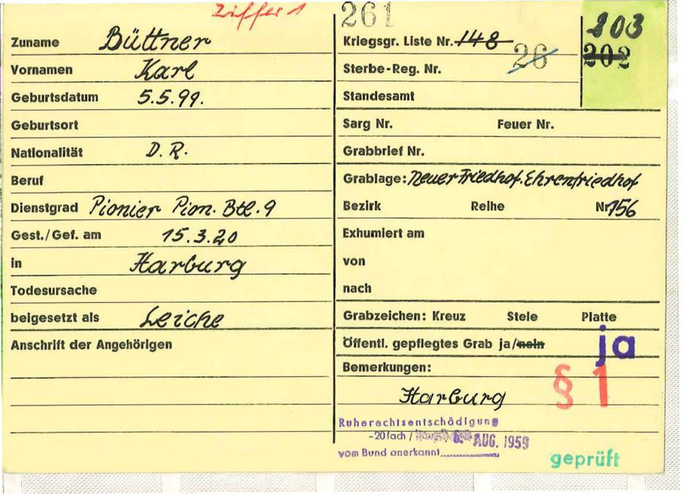 Ziffer 1
261
203
202
Zuname Büttner
Vornamen Karl
Geburtsdatum 5.5.99.
Geburtsort
Nationalität D.R.
Beruf
Dienstgrad Pionier Pion. Btl. 9
Gest./Gef. am 15.3.20
in Harburg
Todesursache
beigesetzt als Leiche
Anschrift der Angehörigen
Kriegsgr. Liste Nr. 148
Sterbe-Reg. Nr. 26
Standesamt
Sarg Nr. Feuer Nr.
Grabbrief Nr.
Grablage: Neuer Friedhof. Ehrenfriedhof
Bezirk Reihe Nr. 156
Exhumiert am
von
nach
Grabzeichen: Kreuz Stele Platte
Öffentl. gepflegtes Grab ja/nein ja
Bemerkungen: § 1
Harburg
Ruherechtsentschädigung
-20fach / AUG. 1959
vom Bund anerkannt
geprüft